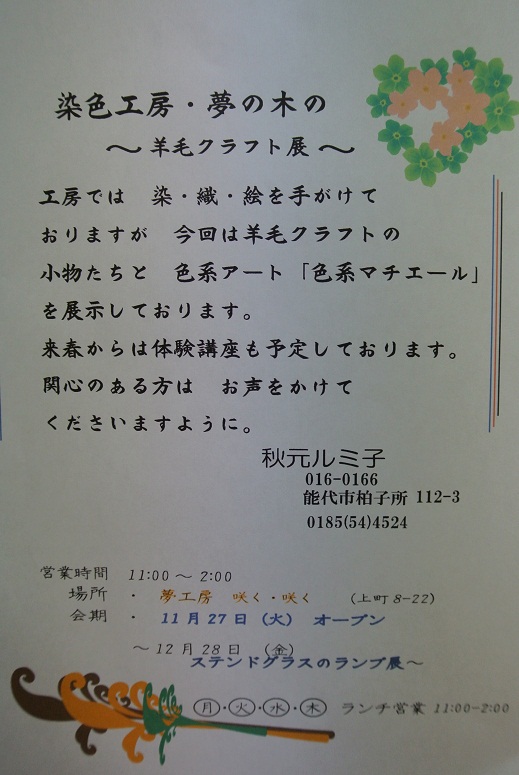 染色工房・夢の木の
～羊毛クラフト展～
工房では 染・織・絵を手がけて
おりますが 今回は羊毛クラフトの
小物たちと 色系アート「色系マチエール」
を展示しております。
来春からは体験講座も予定しております。
関心のある方は お声をかけて
くださいますように。
秋元ルミ子
016-0166
能代市柏子所 112-3
0185(54)4524
営業時間 11:00～2:00
場所・夢工房 咲く・咲く (上町8-22)
会期・11月27日(火) オープン
～12月28日(金)
ステンドグラスのランプ展～
月・火・水・木 ランチ営業 11:00-2:00